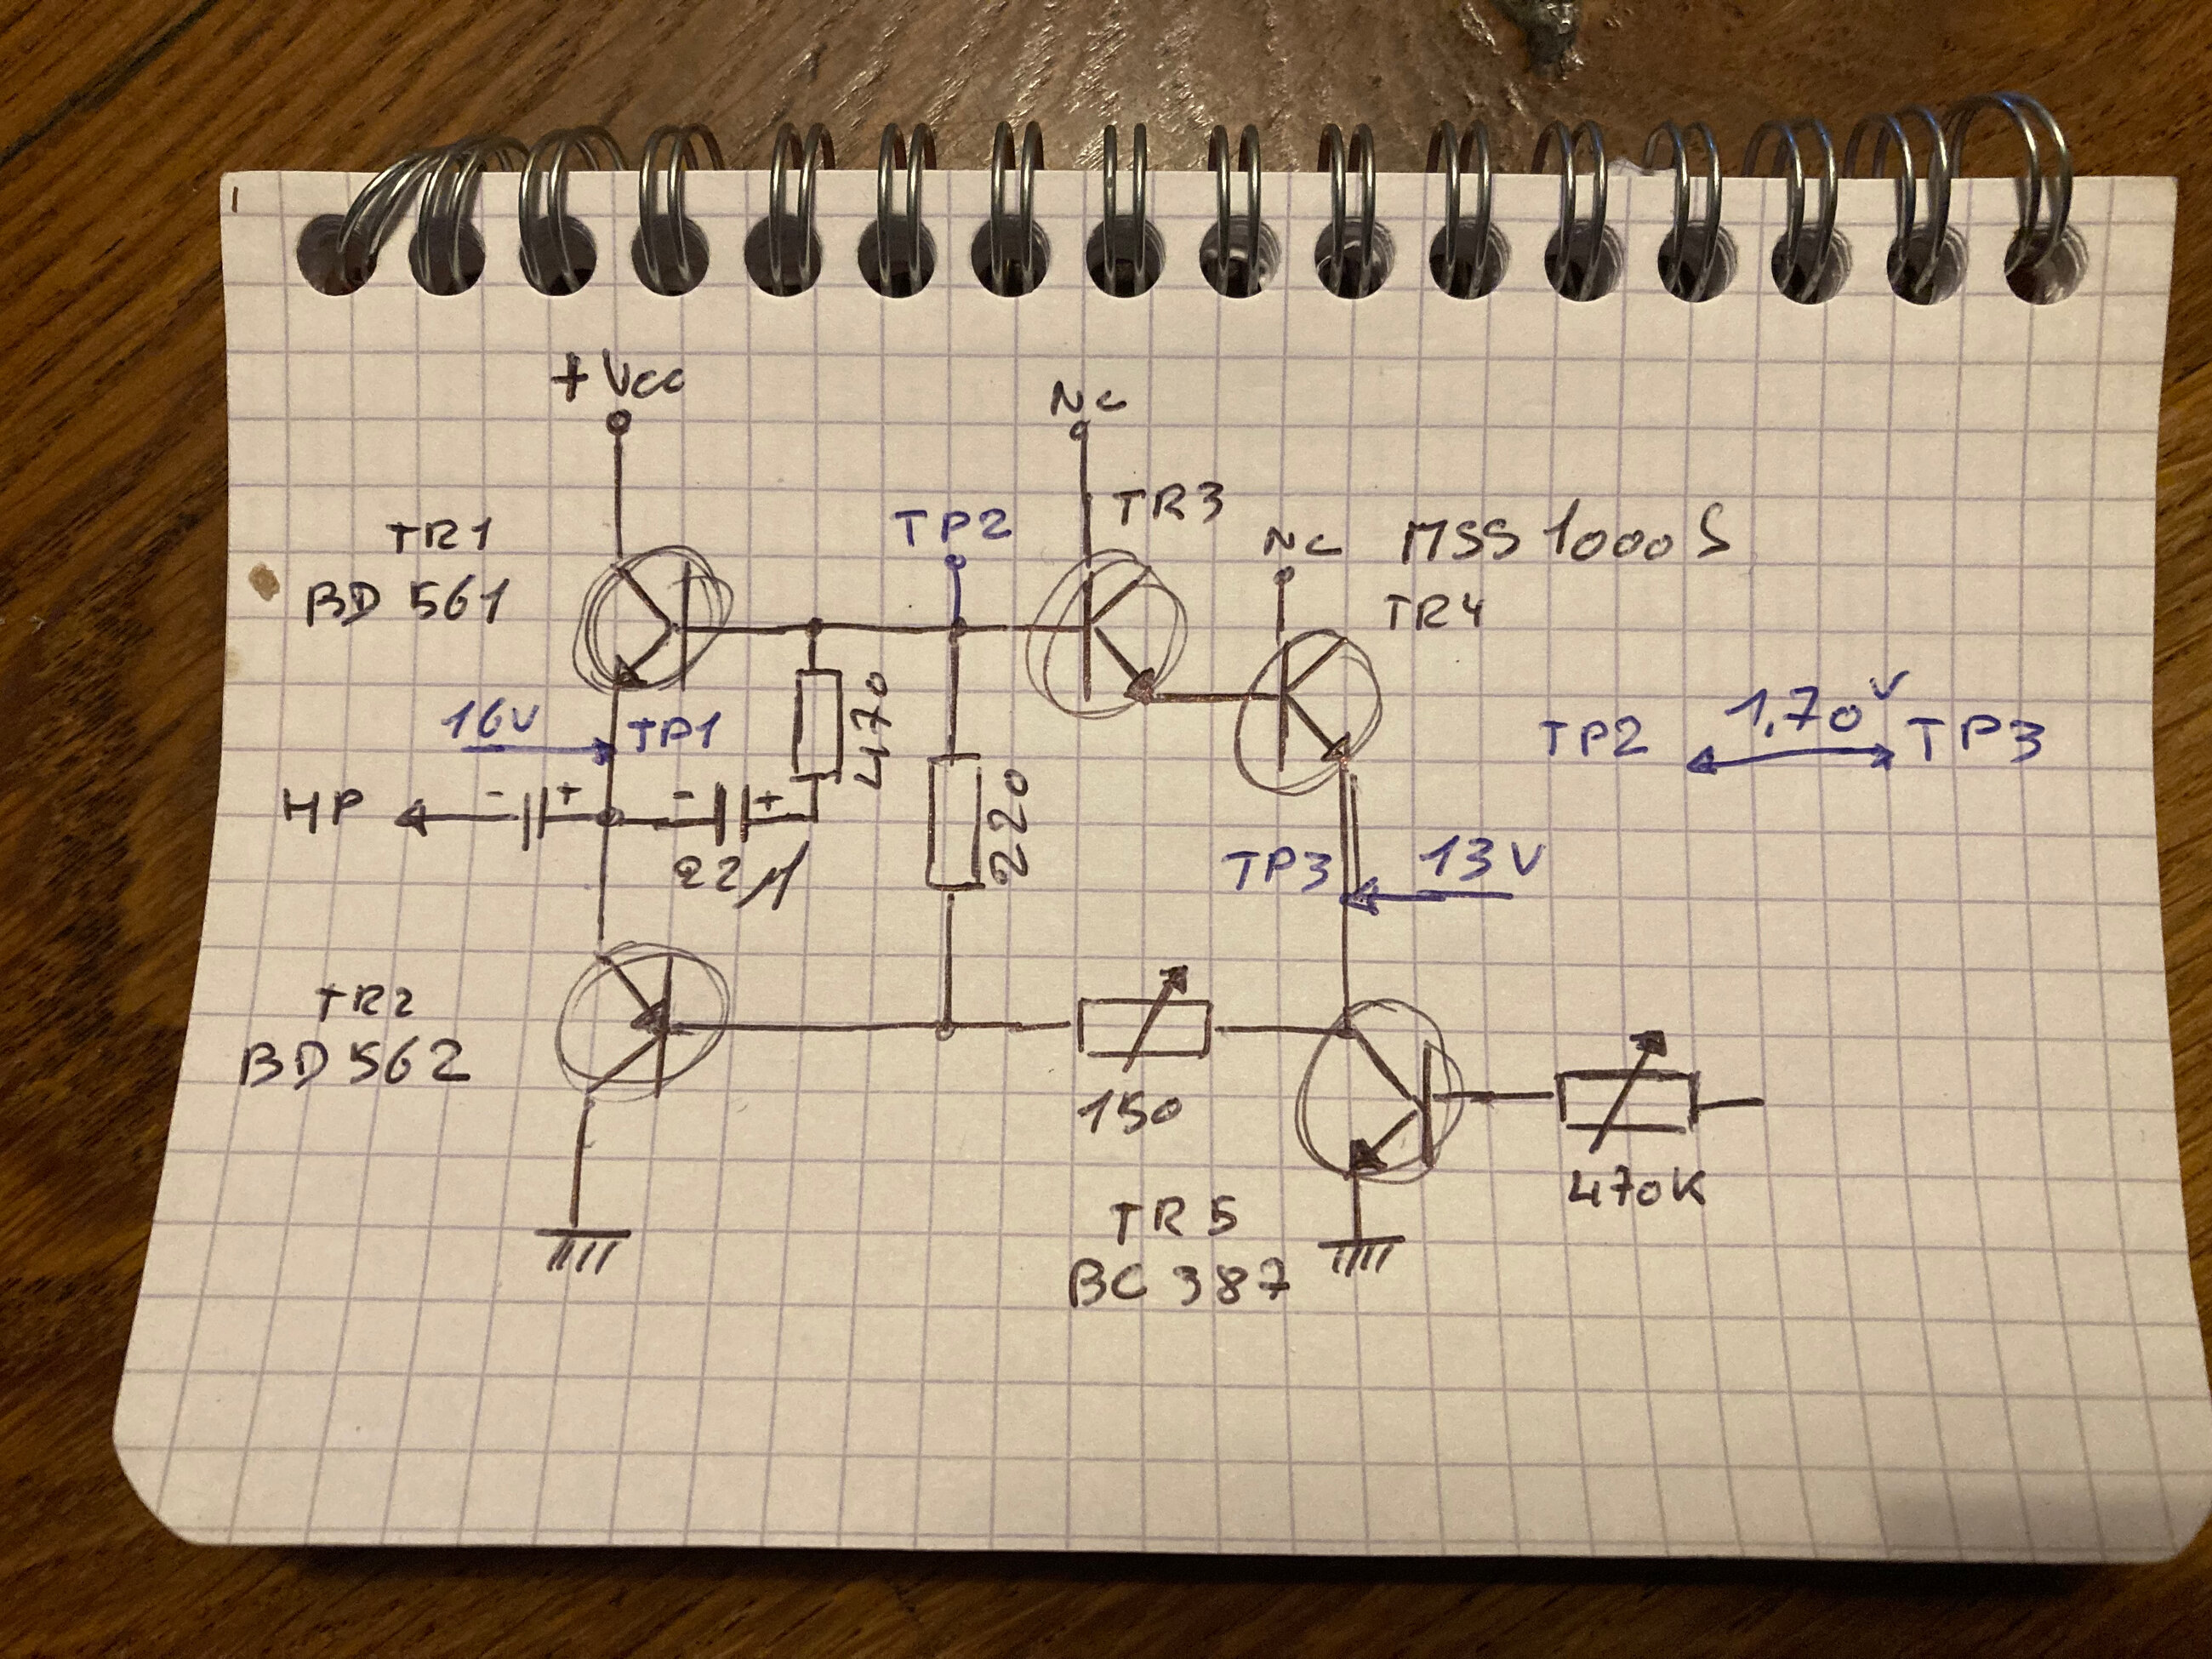 +Vcc
NC
TR3
TP2
TR1
BD 561
NC
MSS 1000S
TR4
16V
TP1
470
TP2 1,70V TP3
HP
- +
- +
22µ
220
TP3
13V
TR2
BD 562
150
470K
TR5
BC 387